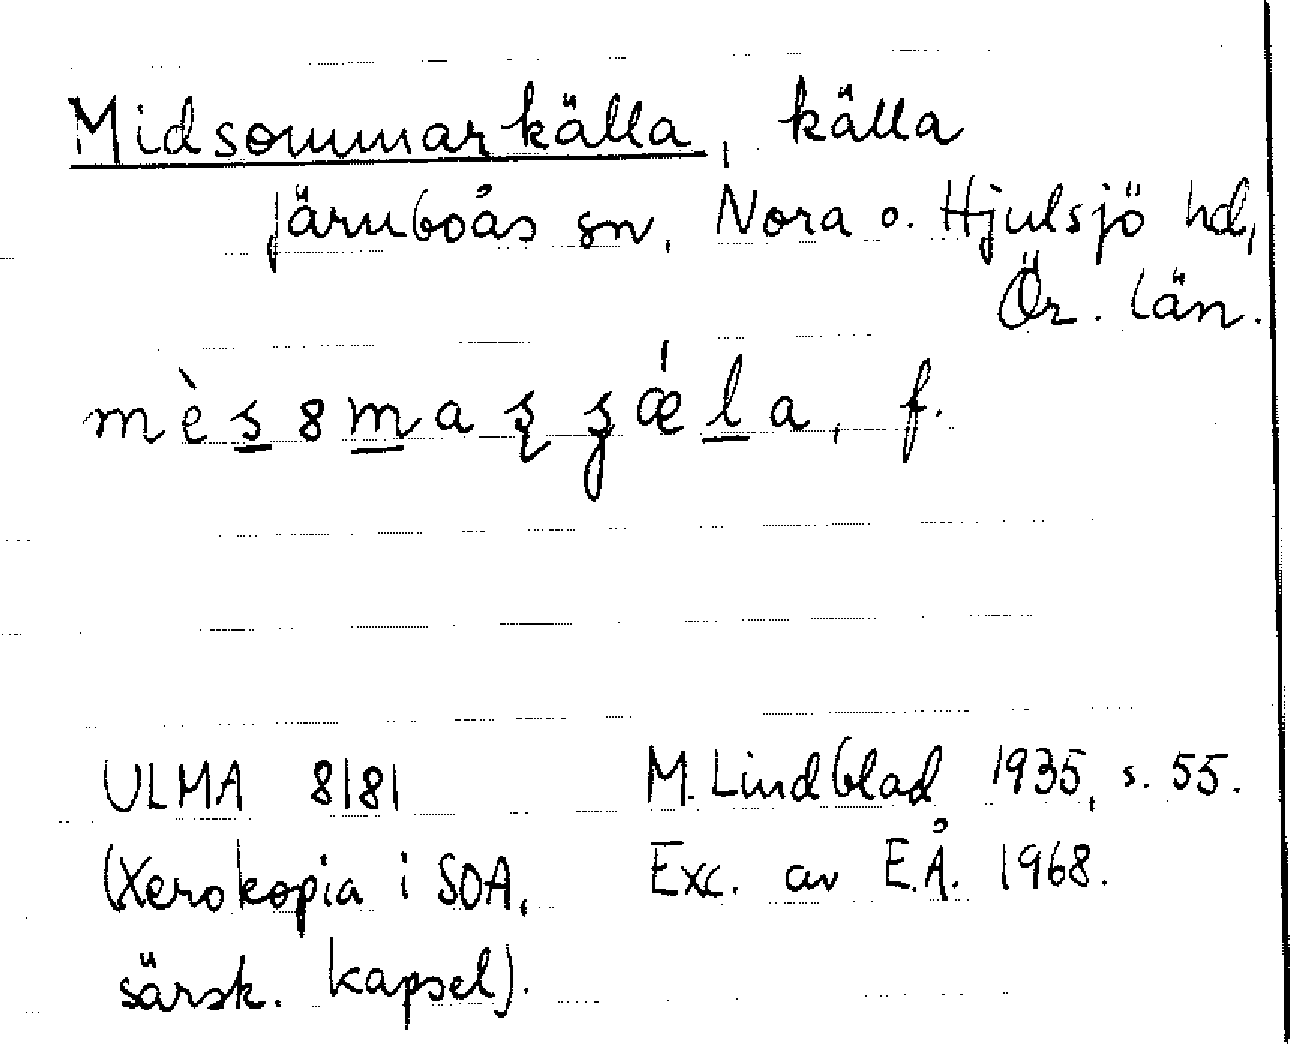 Midsommarkälla, källa
Järnboås sn, Nora o. Hjulsjö hd,
Ör. län.
f.
ULMA 8181 M. Lindblad 1935, s. 55.
(Xerokopia i SOA, Exc. av E.Å. 1968.
särsk. kapsel).